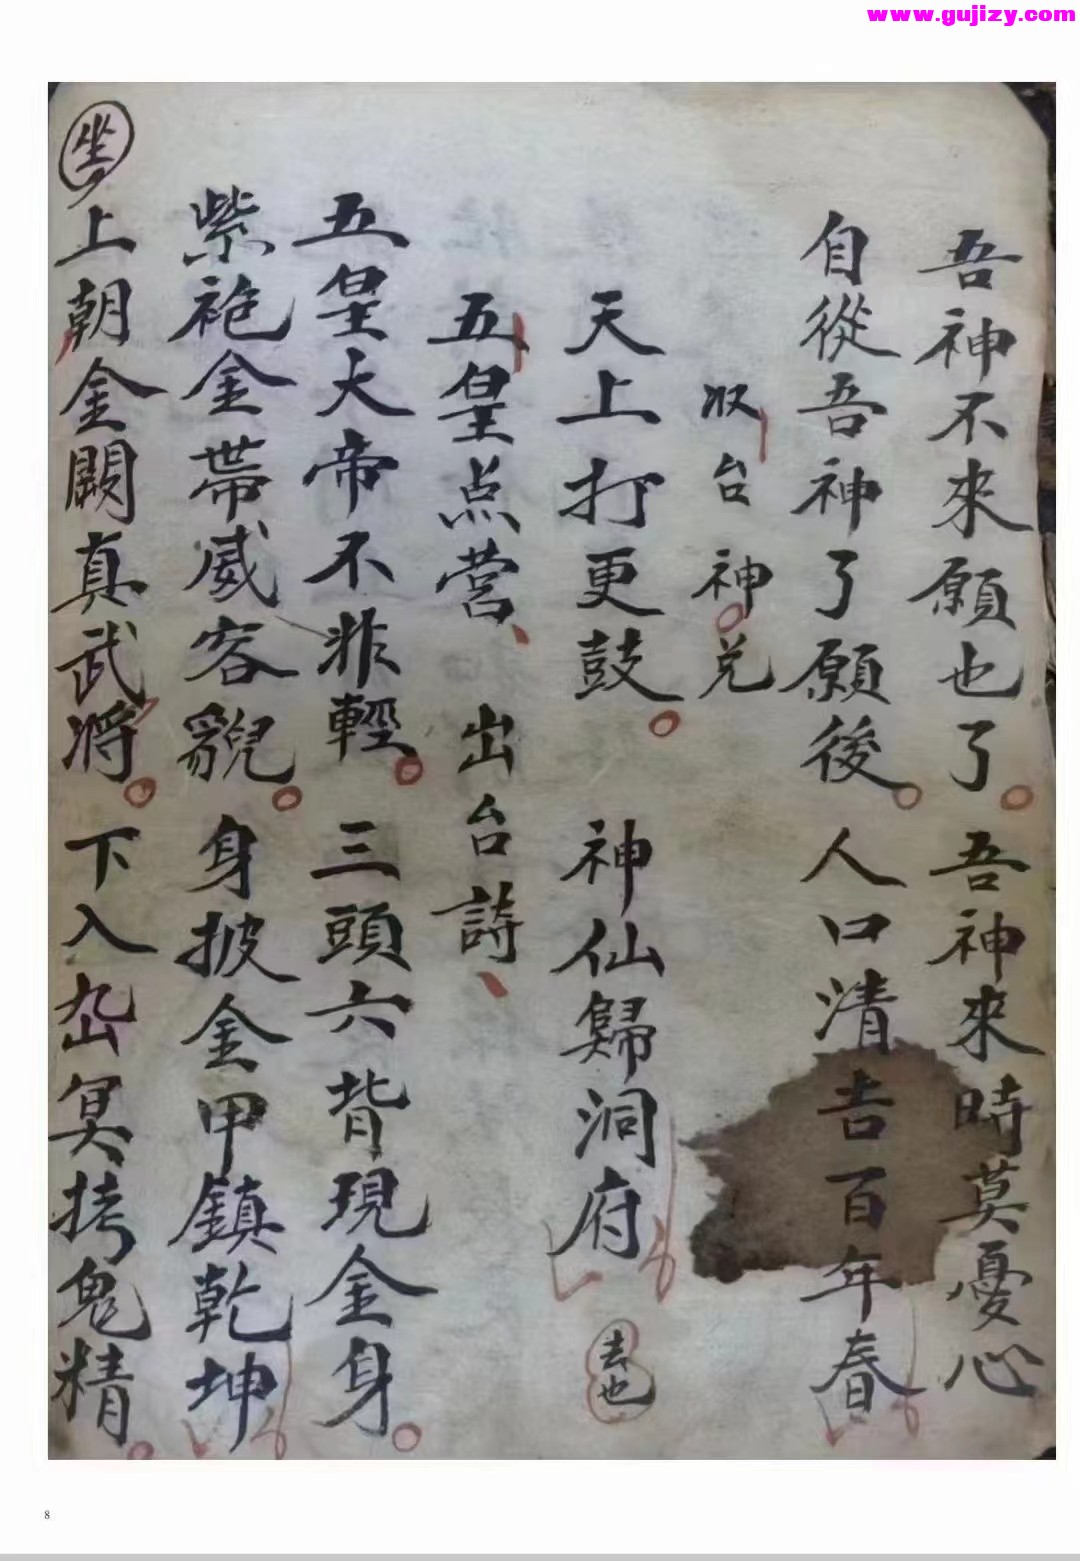 www.gujizy.com
吾神不來願也了。吾神來時莫憂心
自從吾神了願後。人口清吉百年春
收台神兑
天上打更鼓。神仙歸洞府 去也
五皇点营、出台詩、
五皇大帝不非輕。三頭六背現金身。
紫袍金帶威容貌。身披金甲鎮乾坤
坐
上朝金闕真武将。下入冥拷鬼精。
8